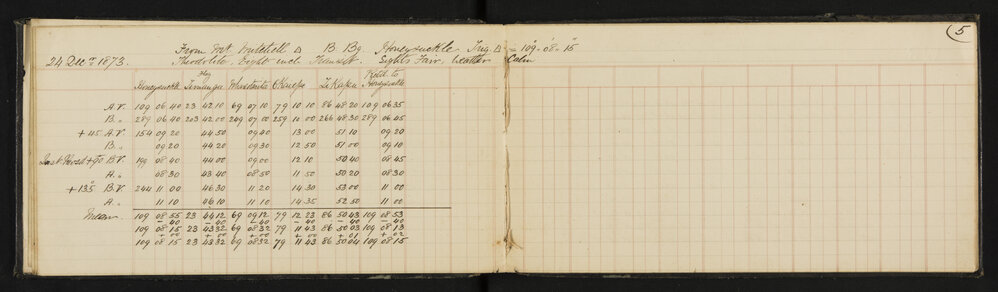 5
From Mt Mitchell △ B. Bg. Honeysuckle Trig. △ = 109°. 08'. 15"
24 Decr 1873. Theodolite. Eight inch Transit. Sights Fair, Weather Calm
Flag Retd to
Honeysuckle Honeysuckle
A.V. 109 06 40 23 42 10 69 07 10 79 10 10 86 48 20 109 06 35
B. „ 289 06 40 203 42 00 249 07 00 259 10 00 266 48 30 289 06 45
+ 45 A.V. 154 09 20 44 50 09 40 13 00 51 10 09 20
B. „ 09 20 44 20 09 30 12 50 51 00 09 10
+ 90 B.V. 199 08 40 44 00 09 00 12 10 50 40 08 45
A. „ 08 30 43 40 08 50 11 50 50 20 08 30
+ 135 B.V. 244 11 00 46 30 11 20 14 30 53 00 11 00
A. „ 11 10 46 10 11 10 14 35 52 50 11 00
Mean. 109 08 55 23 44 12 69 09 12 79 12 23 86 50 43 109 08 53
– 40 – 40 – 40 – 40 – 40 – 40
109 08 15 23 43 32 69 08 32 79 11 43 86 50 03 109 08 13
+ 00 + 00 + 00 + 00 + 01 + 02
109 08 15 23 43 32 69 08 32 79 11 43 86 50 04 109 08 15